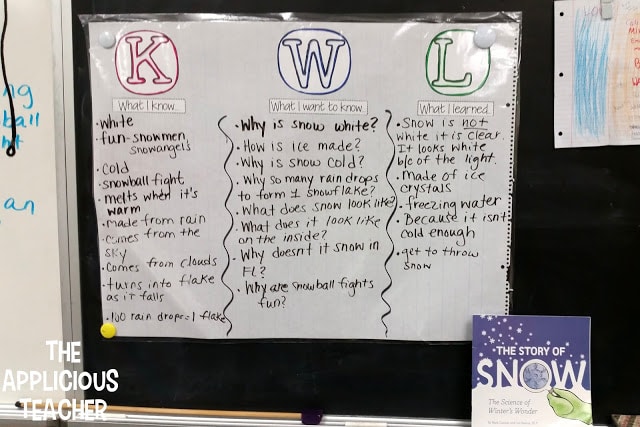 K
What I know...
• white
• fun-snowmen
snowangels
• cold
• snowball fight
• melts when it's
warm
• made from rain
• comes from the
sky
• comes from clouds
• turns into flake
as it falls
• 100 rain drops=1 flake
W
What I want to know...
• Why is snow white?
• How is ice made?
• Why is snow cold?
• Why so many rain drops
to form 1 snowflake?
• What does snow look like?
• What does it look like
on the inside?
• Why doesn't it snow in
FL?
• Why are snowball fights
fun?
L
What I learned
• Snow is not
white it is clear.
It looks white
b/c of the light.
• made of ice
crystals
• freezing water
• Because it isn't
cold enough
• get to throw
snow
THE STORY OF
SNOW
The Science of
Winter's Wonder
THE
APPLICIOUS
TEACHER
ng
ball
an